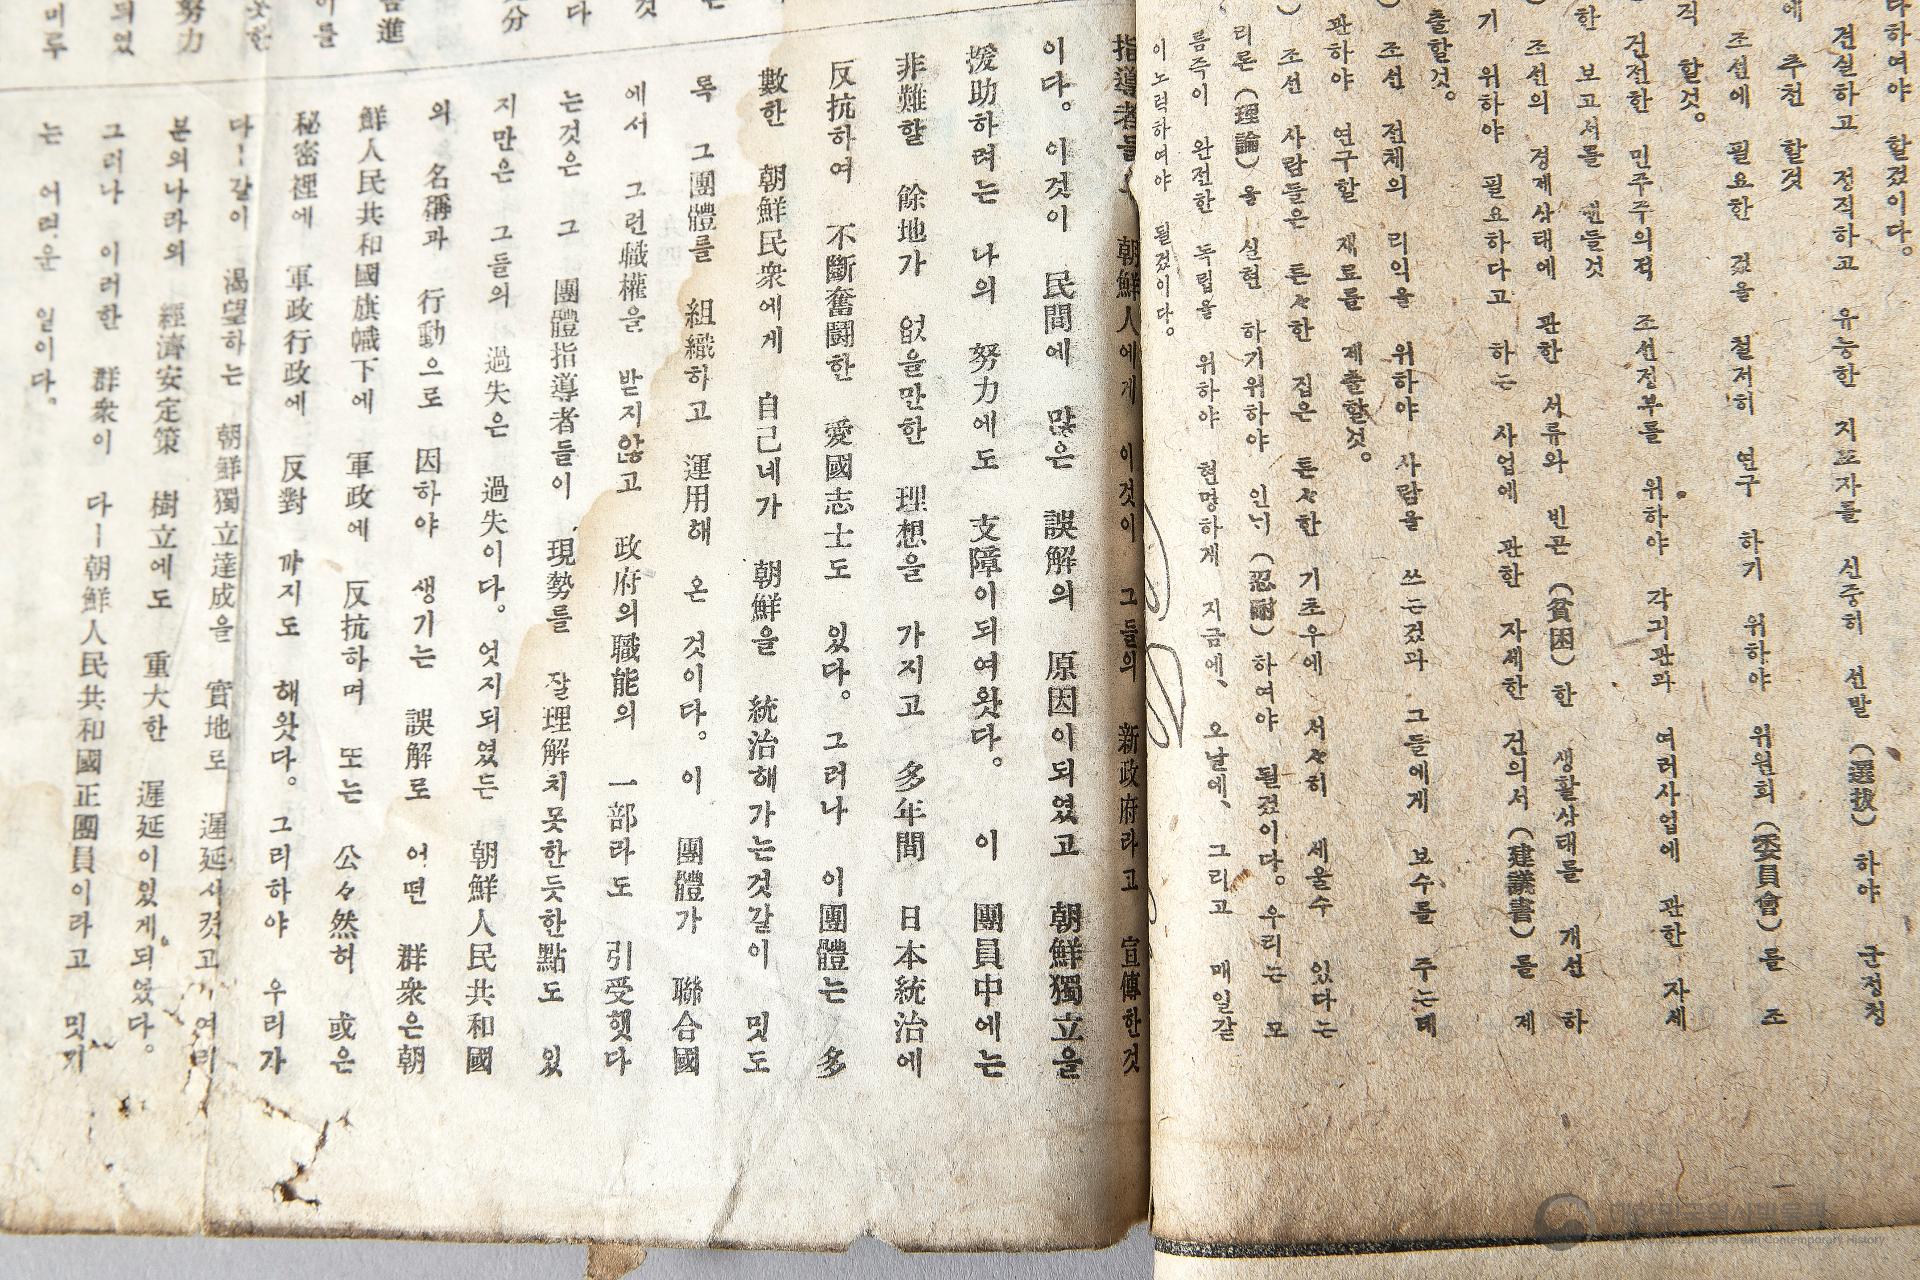 다하여야 할겄이다.
견실하고 정직하고 유능한 지도자를 신중히 선발 (選拔) 하야 군정청
에 추천 할것
조선에 필요한 겄을 철저히 연구 하기 위하야 위원회 (委員會) 를 조
직 할것。
건전한 민주주의적 조선정부를 위하야 각긔관과 여러사업에 관한 자세
한 보고서를 맨들것
조선의 경제상태에 관한 서류와 빈곤 (貧困) 한 생활상태를 개선 하
기 위하야 필요하다고 하는 사업에 관한 자세한 건의서 (建議書) 를 제
출할것。
조선 전체의 리익을 위하야 사람을 쓰는겄과 그들에게 보수를 주는데
관하야 연구할 재료를 제출할것。
조선 사람들은 튼々한 집은 튼々한 기초우에 서々히 세울수 있다는
리론 (理論) 을 실현 하기위하야 인내 (忍耐) 하여야 될겄이다。우리는 모
름즉이 완전한 독립을 위하야 현명하게 지금에、오날에、그리고 매일같
이 노력하여야 될겄이다。
指導者들 朝鮮人에게 이것이 그들의 新政府라고 宣傳한것
이다。이것이 民間에 많은 誤解의 原因이되였고 朝鮮獨立을
援助하려는 나의 努力에도 支障이되여왓다。이 團員中에는
非難할 餘地가 없을만한 理想을 가지고 多年間 日本統治에
反抗하여 不斷奮鬪한 愛國志士도 있다。그러나 이團體는 多
數한 朝鮮民衆에게 自己네가 朝鮮을 統治해가는것같이 밋도
록 그團體를 組織하고 運用해 온 것이다。이 團體가 聯合國
에서 그런職權을 받지않고 政府의職能의 一部라도 引受햇다
는것은 그 團體指導者들이 現勢를 잘理解치못한듯한點도 있
지만은 그들의 過失은 過失이다。엇지되였든 朝鮮人民共和國
의 名稱과 行動으로 因하야 생기는 誤解로 어떤 群衆은朝
鮮人民共和國旗幟下에 軍政에 反抗하며 또는 公々然허 或은
秘密裡에 軍政行政에 反對 까지도 해왓다。그리하야 우리가
다ー같이 渴望하는 朝鮮獨立達成을 實地로 遲延시켯고 여러
분의나라의 經濟安定策 樹立에도 重大한 遲延이있게되였다。
그러나 이러한 群衆이 다ー朝鮮人民共和國正團員이라고 밋기
는 어려운 일이다。
進
를
努力
되였
미루
대한민국역사박물관
of Korean Contemporary History